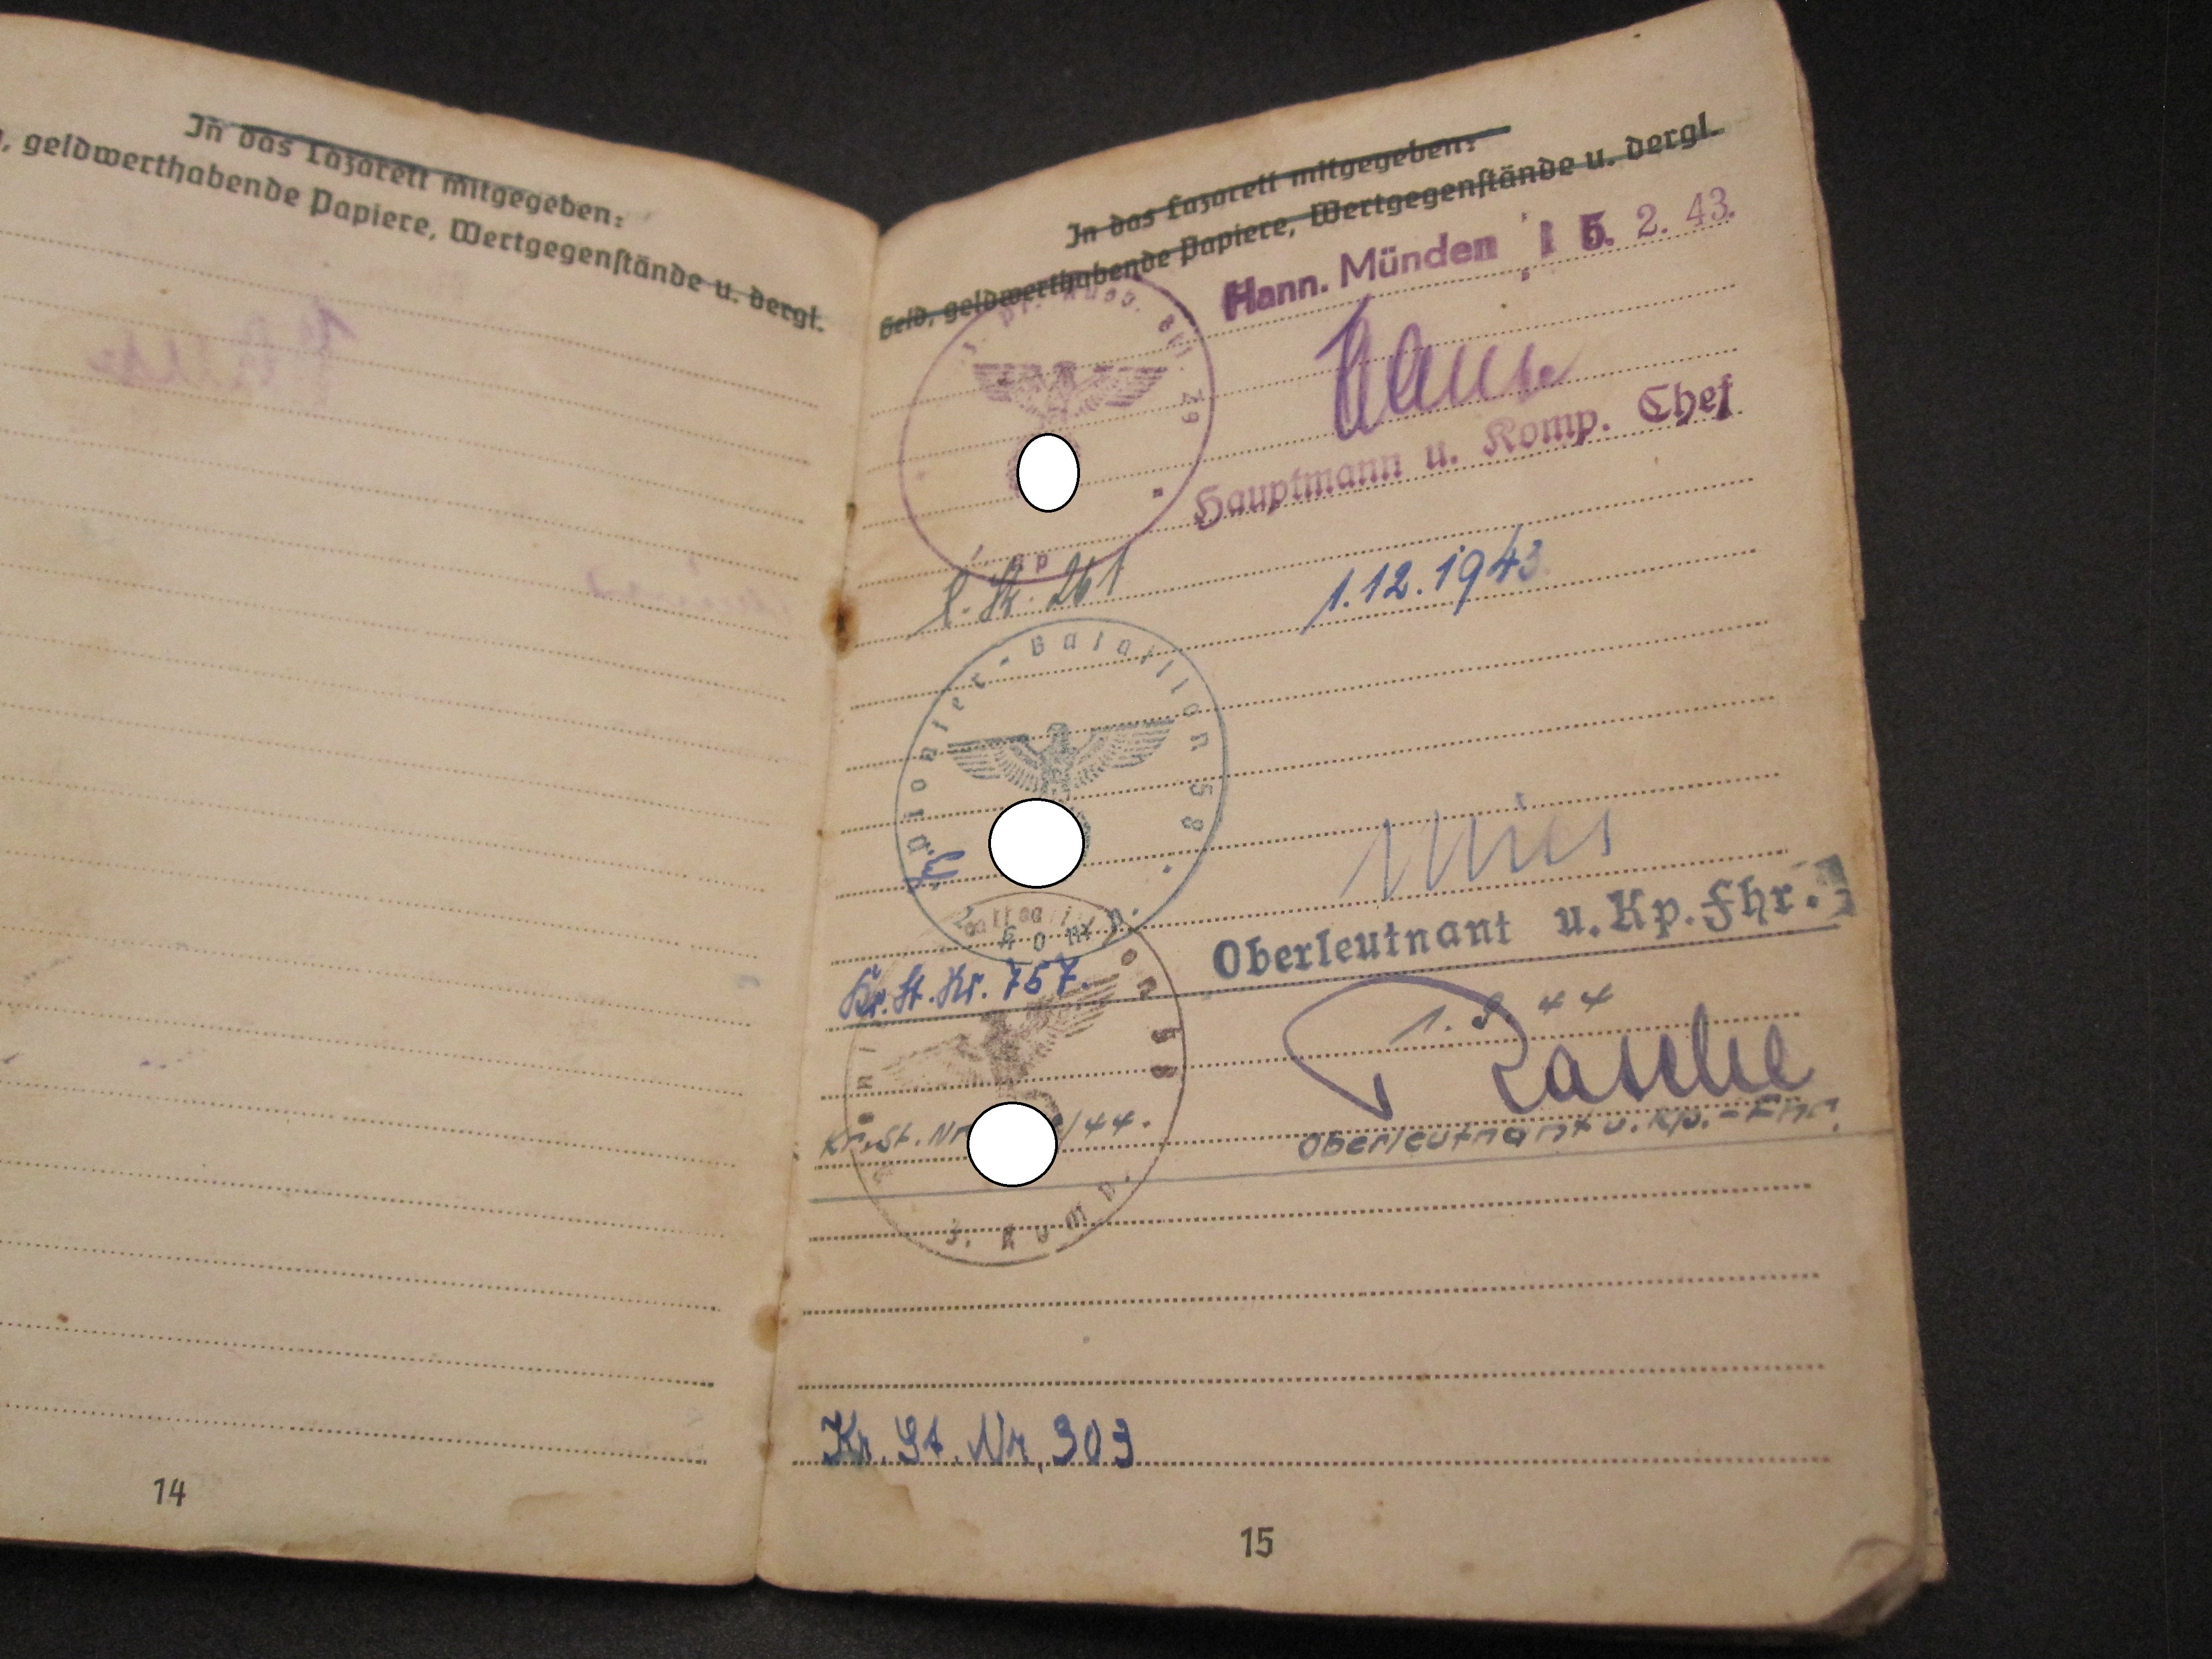 In das Lazarett mitgegeben:
, geldwerthabende Papiere, Wertgegenstände u. dergl.
14
In das Lazarett mitgegeben:
Geld, geldwerthabende Papiere, Wertgegenstände u. dergl.
Hann. Münden 15. 2. 43.
29
Hauptmann u. Komp. Chef
261
1.12.1943
Pionier-Bataillon 58.
3. Komp.
Oberleutnant u. Kp. Fhr.
Kr. St. Nr. 757.
1. 9. 44
Rasche
Kr. St. Nr /44.
Oberleutnant u. Kp.-Fhr.
3. Komp.
Kr. St. Nr. 303
15